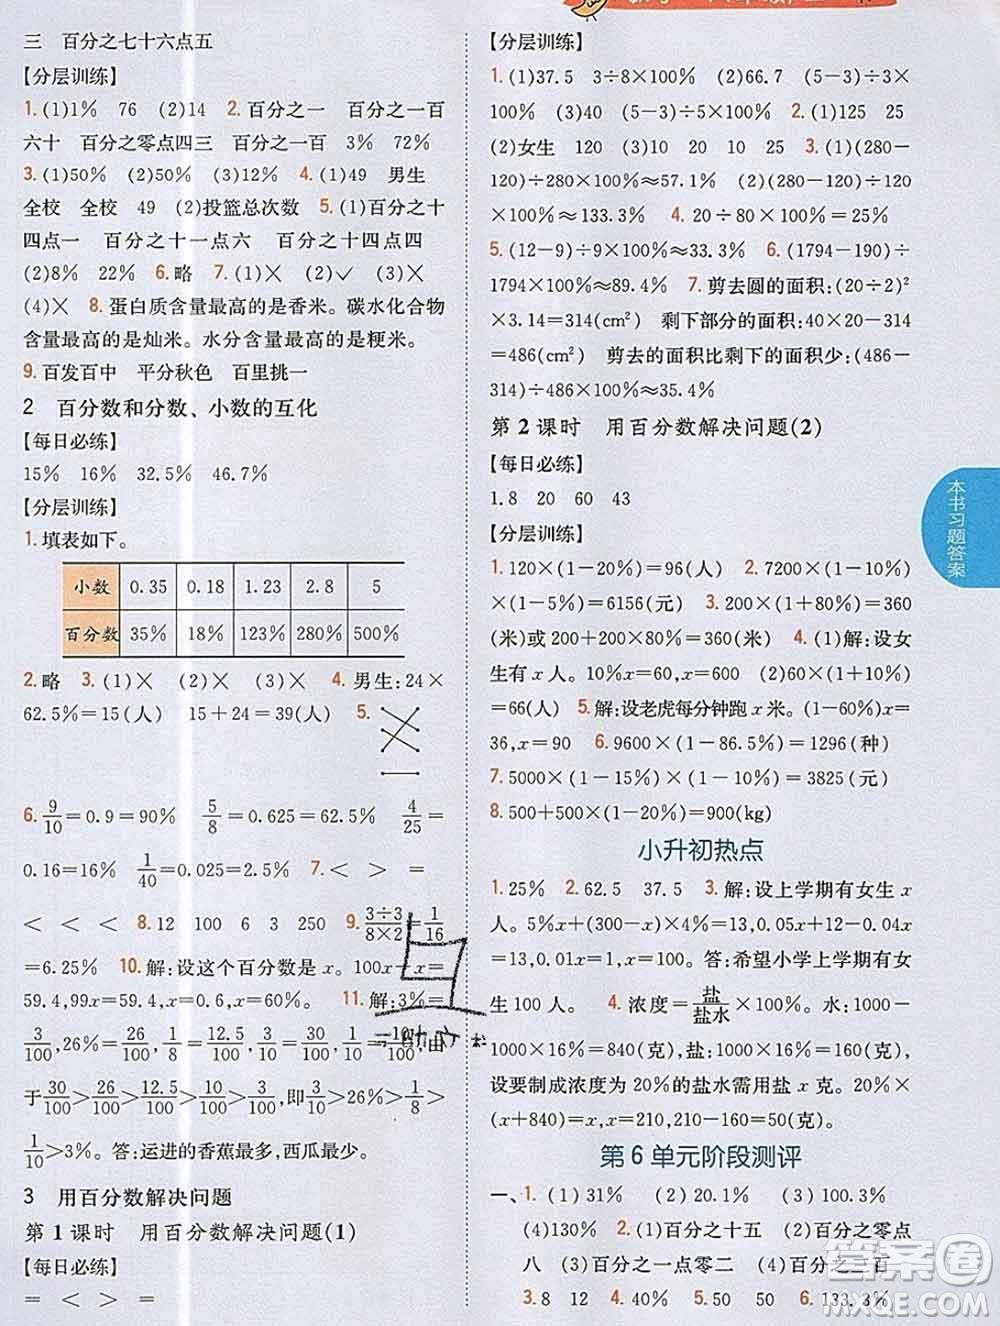 三 百分之七十六点五
【分层训练】
1. (1)1% 76 (2)14 2. 百分之一 百分之一百
六十 百分之零点四三 百分之一百 3% 72%
3. (1)50% (2)50% (3)12% 4. (1)49 男生
全校 全校 49 (2)投篮总次数 5. (1)百分之十
四点一 百分之十一点六 百分之十四点四
(2)8% 22% 6. 略 7. (1)× (2)✓ (3)×
(4)× 8. 蛋白质含量最高的是香米。碳水化合物
含量最高的是灿米。水分含量最高的是粳米。
9. 百发百中 平分秋色 百里挑一
2 百分数和分数、小数的互化
【每日必练】
15% 16% 32.5% 46.7%
【分层训练】
1. 填表如下。
小数 0.35 0.18 1.23 2.8 5
百分数 35% 18% 123% 280% 500%
2. 略 3. (1)× (2)× (3)× 4. 男生:24×
62.5%=15(人) 15+24=39(人) 5.
6. 9/10=0.9=90% 5/8=0.625=62.5% 4/25
=0.16=16% 1/40=0.025=2.5% 7. < > =
< < < 8. 12 100 6 3 250 9. 3÷3/8×2=1/16
=6.25% 10. 解:设这个百分数是 x。100x+x=
59.4,99x=59.4,x=0.6,x=60%。 11. 解:3%=
3/100,26%=26/100,1/8=12.5/100,30%=30/100,1/10=10/100,由
于30/100>26/100>12.5/100>10/100>3/100,即30%>26%>1/8>
1/10>3%。答:运进的香蕉最多,西瓜最少。
3 用百分数解决问题
第 1 课时 用百分数解决问题(1)
【每日必练】
= < > =
【分层训练】
1. (1)37.5 3÷8×100% (2)66.7 (5-3)÷3
×100% (3)40 (5-3)÷5×100% 2. (1)125 25
(2)女生 120 (3)10 20 10 25 3. (1)(280-
120)÷280×100%≈57.1% (2)(280-120)÷120
×100%≈133.3% 4. 20÷80×100%=25%
5. (12-9)÷9×100%≈33.3% 6. (1794-190)÷
1794×100%≈89.4% 7. 剪去圆的面积:(20÷2)²
×3.14=314(cm²) 剩下部分的面积:40×20-314
=486(cm²) 剪去的面积比剩下的面积少:(486-
314)÷486×100%≈35.4%
第 2 课时 用百分数解决问题(2)
【每日必练】
1.8 20 60 43
【分层训练】
1. 120×(1-20%)=96(人) 2. 7200×(1-10%)
×(1-5%)=6156(元) 3. 200×(1+80%)=360
(米)或 200+200×80%=360(米) 4. (1)解:设女
生有 x 人。10%x=60,x=60 (2)60×(1+10%)
=66(人) 5. 解:设老虎每分钟跑 x 米。(1-60%)x=
36,x=90 6. 9600×(1-86.5%)=1296(种)
7. 5000×(1-15%)×(1-10%)=3825(元)
8. 500+500×(1-20%)=900(kg)
小升初热点
1. 25% 2. 62.5 37.5 3. 解:设上学期有女生 x
人。5%x+(300-x)×4%=13,0.05x+12-0.04x
=13,0.01x=1,x=100。答:希望小学上学期有女
生100 人。 4. 浓度=盐/盐水×100%。水:1000-
1000×16%=840(克),盐:1000×16%=160(克),
设要制成浓度为 20%的盐水需用盐 x 克。20%
×(x+840)=x,x=210,210-160=50(克)。
第 6 单元阶段测评
一、1. (1)31% (2)20.1% (3)100.3%
(4)130% 2. (1)百分之十五 (2)百分之零点
八 (3)百分之一点零二 (4)百分之二百
3. 8 12 4. 120 5. 50 50 6. 133.3%
本书习题答案
答案圈
MXQE.COM